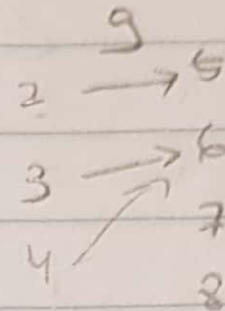 g
2 → 5
3 → 6
4
7
8